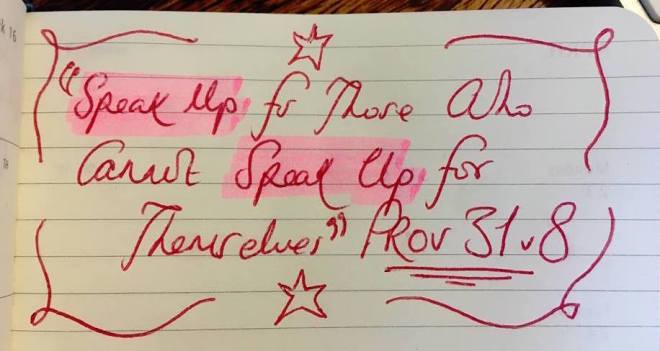 "Speak Up for Those Who
Cannot Speak Up for
Themselves" PROV 31 v 8